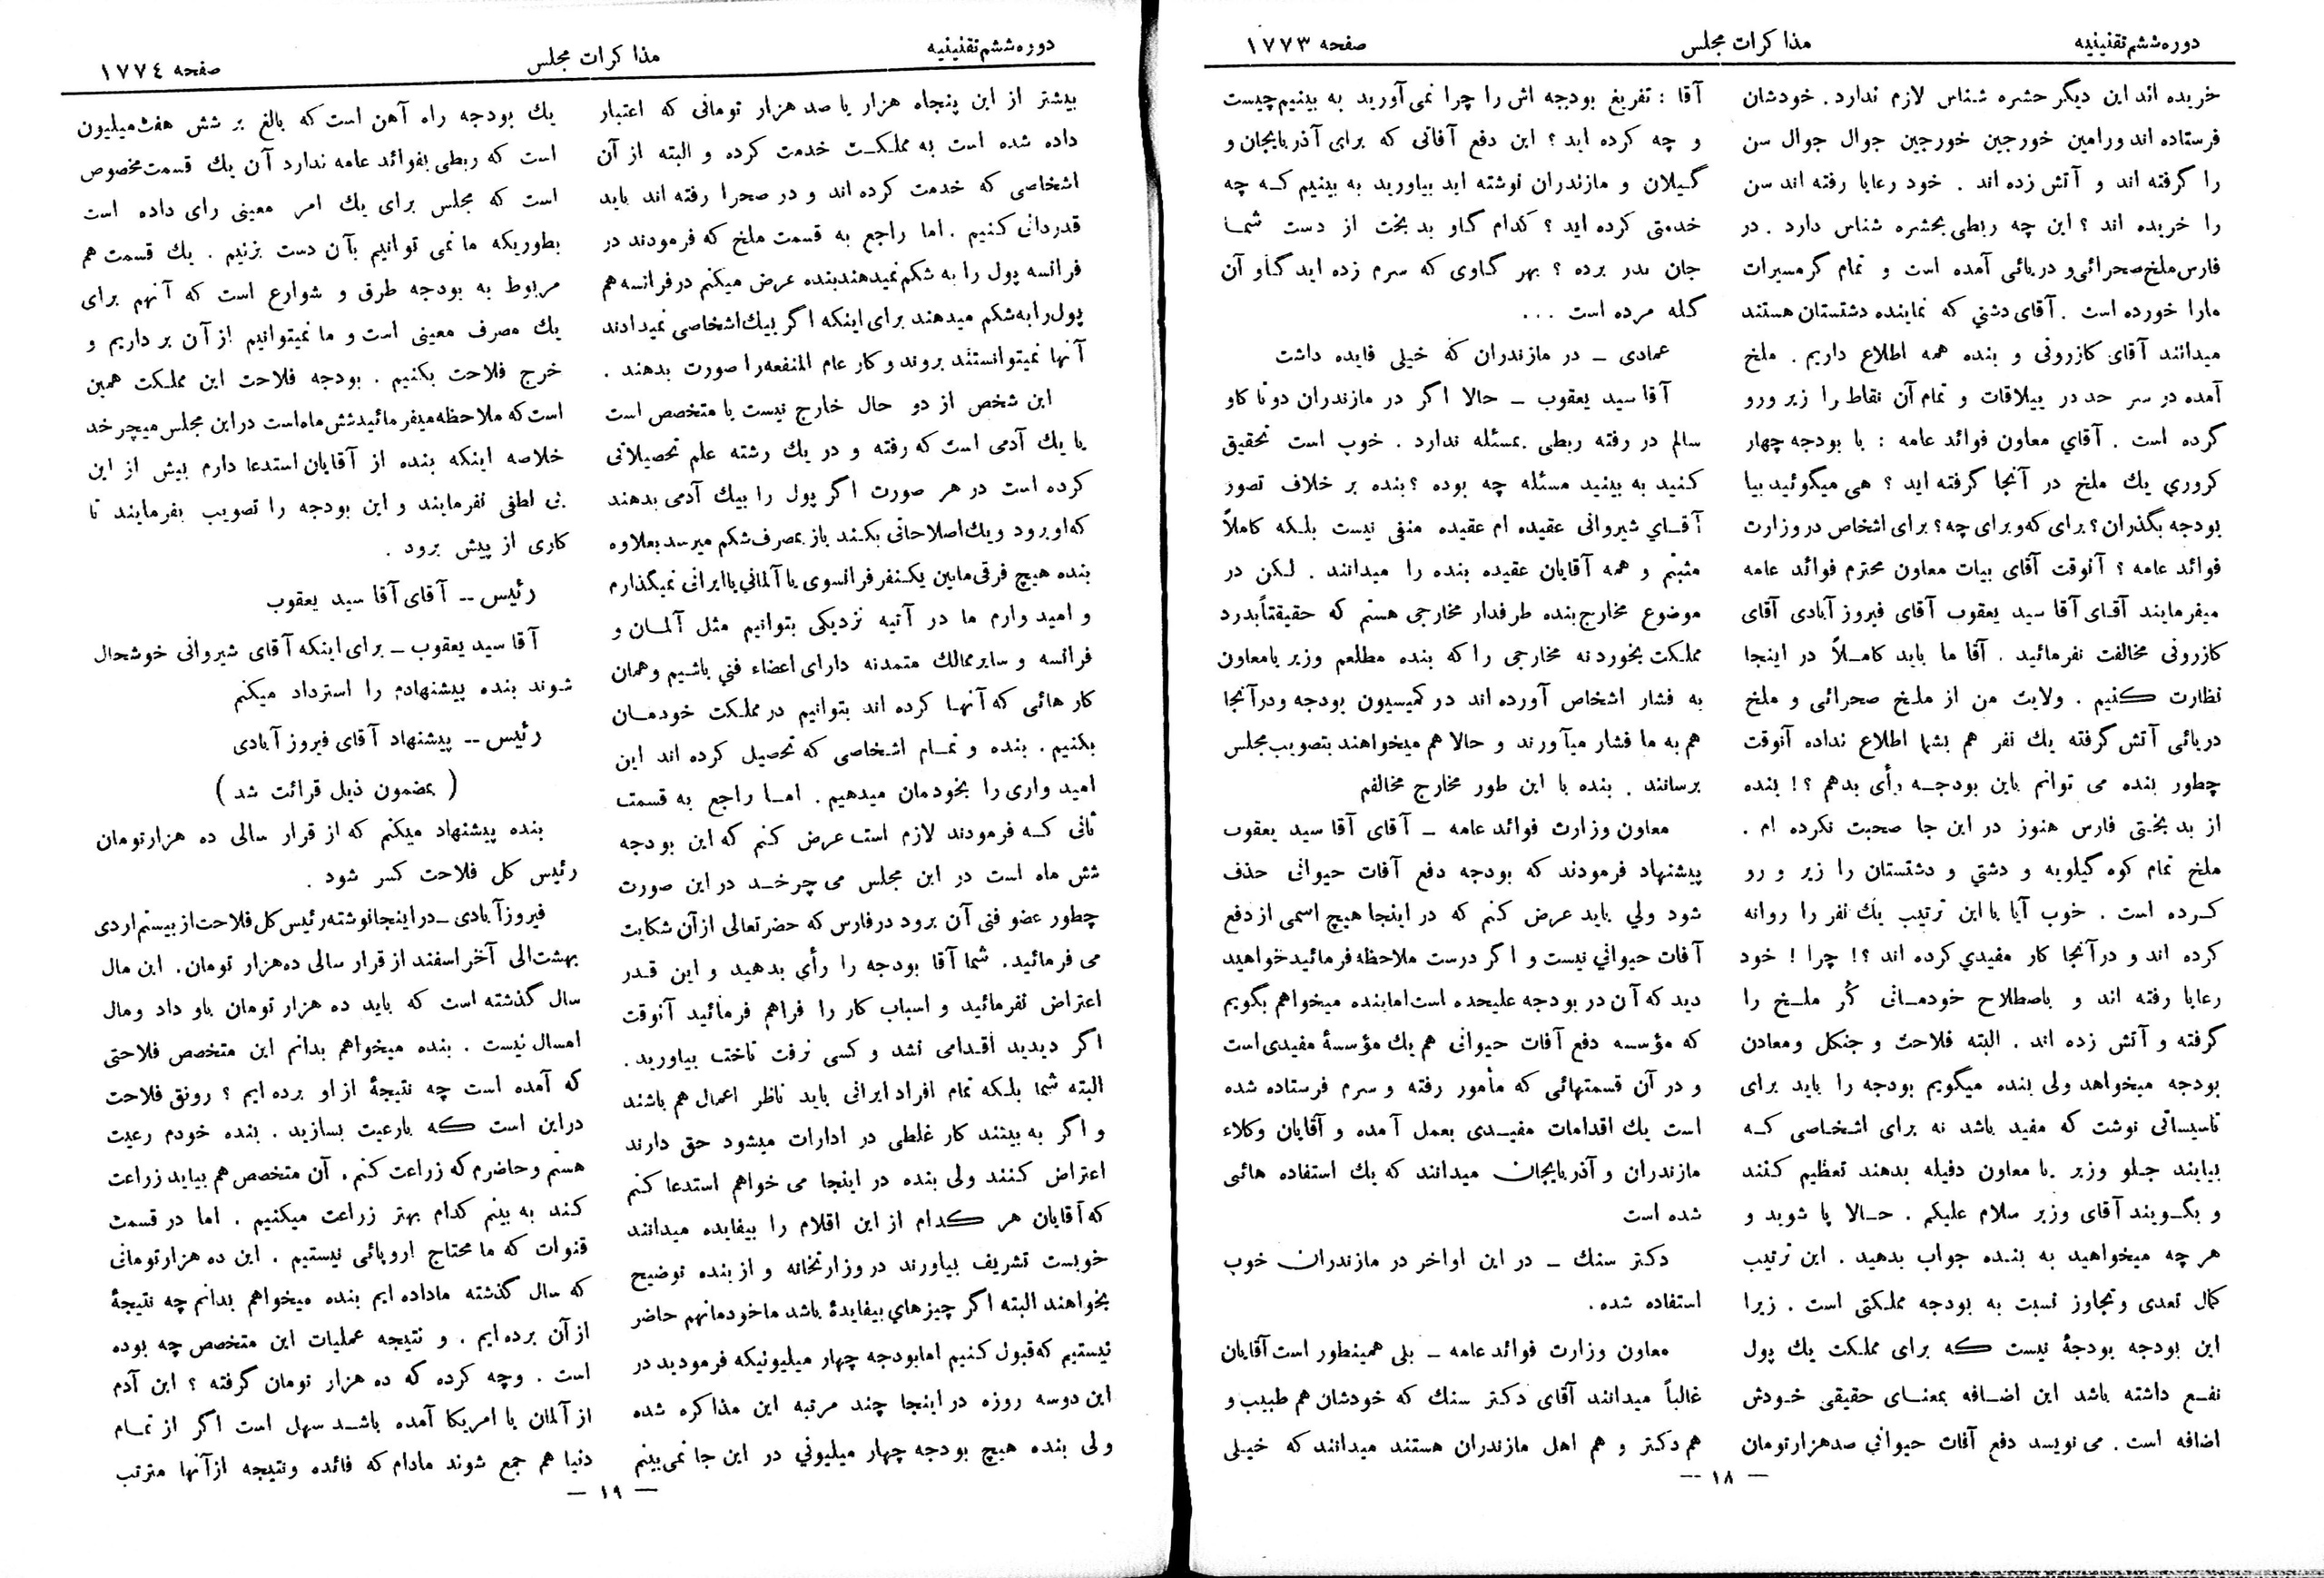 دوره ششم تقنینیه
مذاکرات مجلس
صفحه ۱۷۷۳
خریده اند این دیگر حشره شناس لازم ندارد . خودشان
فرستاده اند ورامین خورجین خورجین جوال جوال سن
را گرفته اند و آتش زده اند . خود رعایا رفته اند سن
را خریده اند ؟ این چه ربطی بحشره شناس دارد . در
فارس ملخ صحرائی و دریائی آمده است و تمام گرمسیرات
مارا خورده است . آقای دشتي که نماینده دشتستان هستند
میدانند آقای کازرونی و بنده همه اطلاع داریم . ملخ
آمده در سر حد در ییلاقات و تمام آن نقاط را زیر ورو
کرده است . آقاي معاون فوائد عامه : با بودجه چهار
کروري یك ملخ در آنجا گرفته اید ؟ هی میگوئید بیا
بودجه بگذران ؟ برای که و برای چه ؟ برای اشخاص در وزارت
فوائد عامه ؟ آنوقت آقای بیات معاون محترم فوائد عامه
میفرمایند آقای آقا سید یعقوب آقای فیروز آبادی آقای
کازرونی مخالفت نفرمائید . آقا ما باید کاملاً در اینجا
نظارت کنیم . ولایت من از ملخ صحرائی و ملخ
دریائی آتش گرفته یك نفر هم بشما اطلاع نداده آنوقت
چطور بنده می توانم باین بودجه رأی بدهم ؟ ! بنده
از بد بختی فارس هنوز در این جا صحبت نکرده ام .
ملخ تمام کوه گیلویه و دشتي و دشتستان را زیر و رو
کرده است . خوب آیا با این ترتیب یك نفر را روانه
کرده اند و در آنجا کار مفیدي کرده اند ؟ ! چرا ! خود
رعایا رفته اند و باصطلاح خودمانی کُر ملخ را
گرفته و آتش زده اند . البته فلاحت و جنکل و معادن
بودجه میخواهد ولی بنده میگویم بودجه را باید برای
تاسیساتی نوشت که مفید باشد نه برای اشخاصی که
بیایند جلو وزیر یا معاون دفیله بدهند تعظیم کنند
و بگویند آقای وزیر سلام علیکم . حالا پا شوید و
هر چه میخواهید به بنده جواب بدهید . این ترتیب
کمال تعدی و تجاوز نسبت به بودجه مملکتی است . زیرا
این بودجه بودجهٔ نیست که برای مملکت یك پول
نفع داشته باشد این اضافه بمعنای حقیقی خودش
اضافه است . می نویسد دفع آفات حیوانی صدهزار تومان
آقا : تفریغ بودجه اش را چرا نمی آورید به بینیم چیست
و چه کرده اید ؟ این دفع آفاتی که برای آذربایجان و
گیلان و مازندران نوشته اید بیاورید به بینیم که چه
خدمتی کرده اید ؟ کدام گاو بد بخت از دست شما
جان بدر برده ؟ بهر گاوی که سرم زده اید گاو آن
گله مرده است . . .
عمادی ــ در مازندران که خیلی فایده داشت
آقا سید یعقوب ــ حالا اگر در مازندران دو تا کاو
سالم در رفته ربطی بمسئله ندارد . خوب است تحقیق
کنید به بینید مسئله چه بوده ؟ بنده بر خلاف تصور
آقای شیروانی عقیده ام عقیده منفی نیست بلکه کاملاً
مثبتم و همه آقایان عقیده بنده را میدانند . لکن در
موضوع مخارج بنده طرفدار مخارجی هستم که حقیقتاً بدرد
مملکت بخورد نه مخارجی را که بنده مطلعم وزیر یا معاون
به فشار اشخاص آورده اند در کمیسیون بودجه و در آنجا
هم به ما فشار میآورند و حالا هم میخواهند بتصویب مجلس
برسانند . بنده با این طور مخارج مخالفم
معاون وزارت فوائد عامه ــ آقای آقا سید یعقوب
پیشنهاد فرمودند که بودجه دفع آفات حیوانی حذف
شود ولي باید عرض کنم که در اینجا هیچ اسمی از دفع
آفات حیواني نیست و اگر درست ملاحظه فرمائید خواهید
دید که آن در بودجه علیحده است اما بنده میخواهم بگویم
که مؤسسه دفع آفات حیوانی هم یك مؤسسهٔ مفیدی است
و در آن قسمتهائی که مأمور رفته و سرم فرستاده شده
است یك اقدامات مفیدی بعمل آمده و آقایان وکلاء
مازندران و آذربایجان میدانند که یك استفاده هائی
شده است
دکتر سنك ــ در این اواخر در مازندران خوب
استفاده شده .
معاون وزارت فوائد عامه ــ بلی همینطور است آقایان
غالباً میدانند آقای دکتر سنك که خودشان هم طبیب و
هم دکتر و هم اهل مازندران هستند میدانند که خیلی
— ۱۸ —
دوره ششم تقنینیه
مذاکرات مجلس
صفحه ۱۷۷٤
بیشتر از این پنجاه هزار یا صد هزار تومانی که اعتبار
داده شده است به مملکت خدمت کرده و البته از آن
اشخاصی که خدمت کرده اند و در صحرا رفته اند باید
قدردانی کنیم . اما راجع به قسمت ملخ که فرمودند در
فرانسه پول را به شکم نمیدهند بنده عرض میکنم در فرانسه هم
پول را به شکم میدهند برای اینکه اگر بیك اشخاصی نمیدادند
آنها نمیتوانستند بروند و کار عام المنفعه را صورت بدهند .
این شخص از دو حال خارج نیست یا متخصص است
یا یك آدمی است که رفته و در یك رشته علم تحصیلاتی
کرده است در هر صورت اگر پول را بیك آدمی بدهند
که او برود و یك اصلاحاتی بکند باز بمصرف شکم میرسد بعلاوه
بنده هیچ فرقی مابین یکنفر فرانسوی یا آلماني یا ایرانی نمیگذارم
و امید وارم ما در آتیه نزدیکی بتوانیم مثل آلمان و
فرانسه و سایر ممالك متمدنه دارای اعضاء فني باشیم و همان
کار هائی که آنها کرده اند بتوانیم در مملکت خودمان
بکنیم . بنده و تمام اشخاصی که تحصیل کرده اند این
امید واری را بخودمان میدهیم . اما راجع به قسمت
ثانی که فرمودند لازم است عرض کنم که این بودجه
شش ماه است در این مجلس می چرخد در این صورت
چطور عضو فنی آن برود در فارس که حضرتعالی از آن شکایت
می فرمائید . شما آقا بودجه را رأی بدهید و این قدر
اعتراض نفرمائید و اسباب کار را فراهم فرمائید آنوقت
اگر دیدید اقدامی نشد و کسی نرفت تاخت بیاورید .
البته شما بلکه تمام افراد ایرانی باید ناظر اعمال هم باشند
و اگر به بینند کار غلطی در ادارات میشود حق دارند
اعتراض کنند ولی بنده در اینجا می خواهم استدعا کنم
که آقایان هر کدام از این اقلام را بیفایده میدانند
خوبست تشریف بیاورند در وزارتخانه و از بنده توضیح
بخواهند البته اگر چیزهاي بیفایدهٔ باشد ما خودمانهم حاضر
نیستیم که قبول کنیم اما بودجه چهار میلیونیکه فرمودید در
این دوسه روزه در اینجا چند مرتبه این مذاکره شده
ولی بنده هیچ بودجه چهار میلیوني در این جا نمی بینم
یك بودجه راه آهن است که بالغ بر شش هفت میلیون
است که ربطی بفوائد عامه ندارد آن یك قسمت مخصوص
است که مجلس برای یك امر معینی رای داده است
بطوریکه ما نمی توانیم بآن دست بزنیم . یك قسمت هم
مربوط به بودجه طرق و شوارع است که آنهم برای
یك مصرف معینی است و ما نمیتوانیم از آن بر داریم و
خرج فلاحت بکنیم . بودجه فلاحت این مملکت همین
است که ملاحظه میفرمائید شش ماه است در این مجلس میچرخد
خلاصه اینکه بنده از آقایان استدعا دارم بیش از این
بی لطفی نفرمایند و این بودجه را تصویب بفرمایند تا
کاری از پیش برود .
رئیس -- آقای آقا سید یعقوب
آقا سید یعقوب ــ برای اینکه آقای شیروانی خوشحال
شوند بنده پیشنهادم را استرداد میکنم
رئیس -- پیشنهاد آقای فیروز آبادی
( بمضمون ذیل قرائت شد )
بنده پیشنهاد میکنم که از قرار سالی ده هزار تومان
رئیس کل فلاحت کسر شود .
فیروز آبادی ــ در اینجا نوشته رئیس کل فلاحت از بیستم اردی
بهشت الی آخر اسفند از قرار سالی ده هزار تومان . این مال
سال گذشته است که باید ده هزار تومان باو داد و مال
امسال نیست . بنده میخواهم بدانم این متخصص فلاحتی
که آمده است چه نتیجهٔ از او برده ایم ؟ رونق فلاحت
در این است که بارعیت بسازید . بنده خودم رعیت
هستم و حاضرم که زراعت کنم . آن متخصص هم بیاید زراعت
کند به بینم کدام بهتر زراعت میکنیم . اما در قسمت
قنوات که ما محتاج اروپائی نیستیم . این ده هزار تومانی
که سال گذشته ماداده ایم بنده میخواهم بدانم چه نتیجهٔ
از آن برده ایم . و نتیجه عملیات این متخصص چه بوده
است . وچه کرده که ده هزار تومان گرفته ؟ این آدم
از آلمان یا امریکا آمده باشد سهل است اگر از تمام
دنیا هم جمع شوند مادام که فائده و نتیجه از آنها مترتب
— ۱۹ —